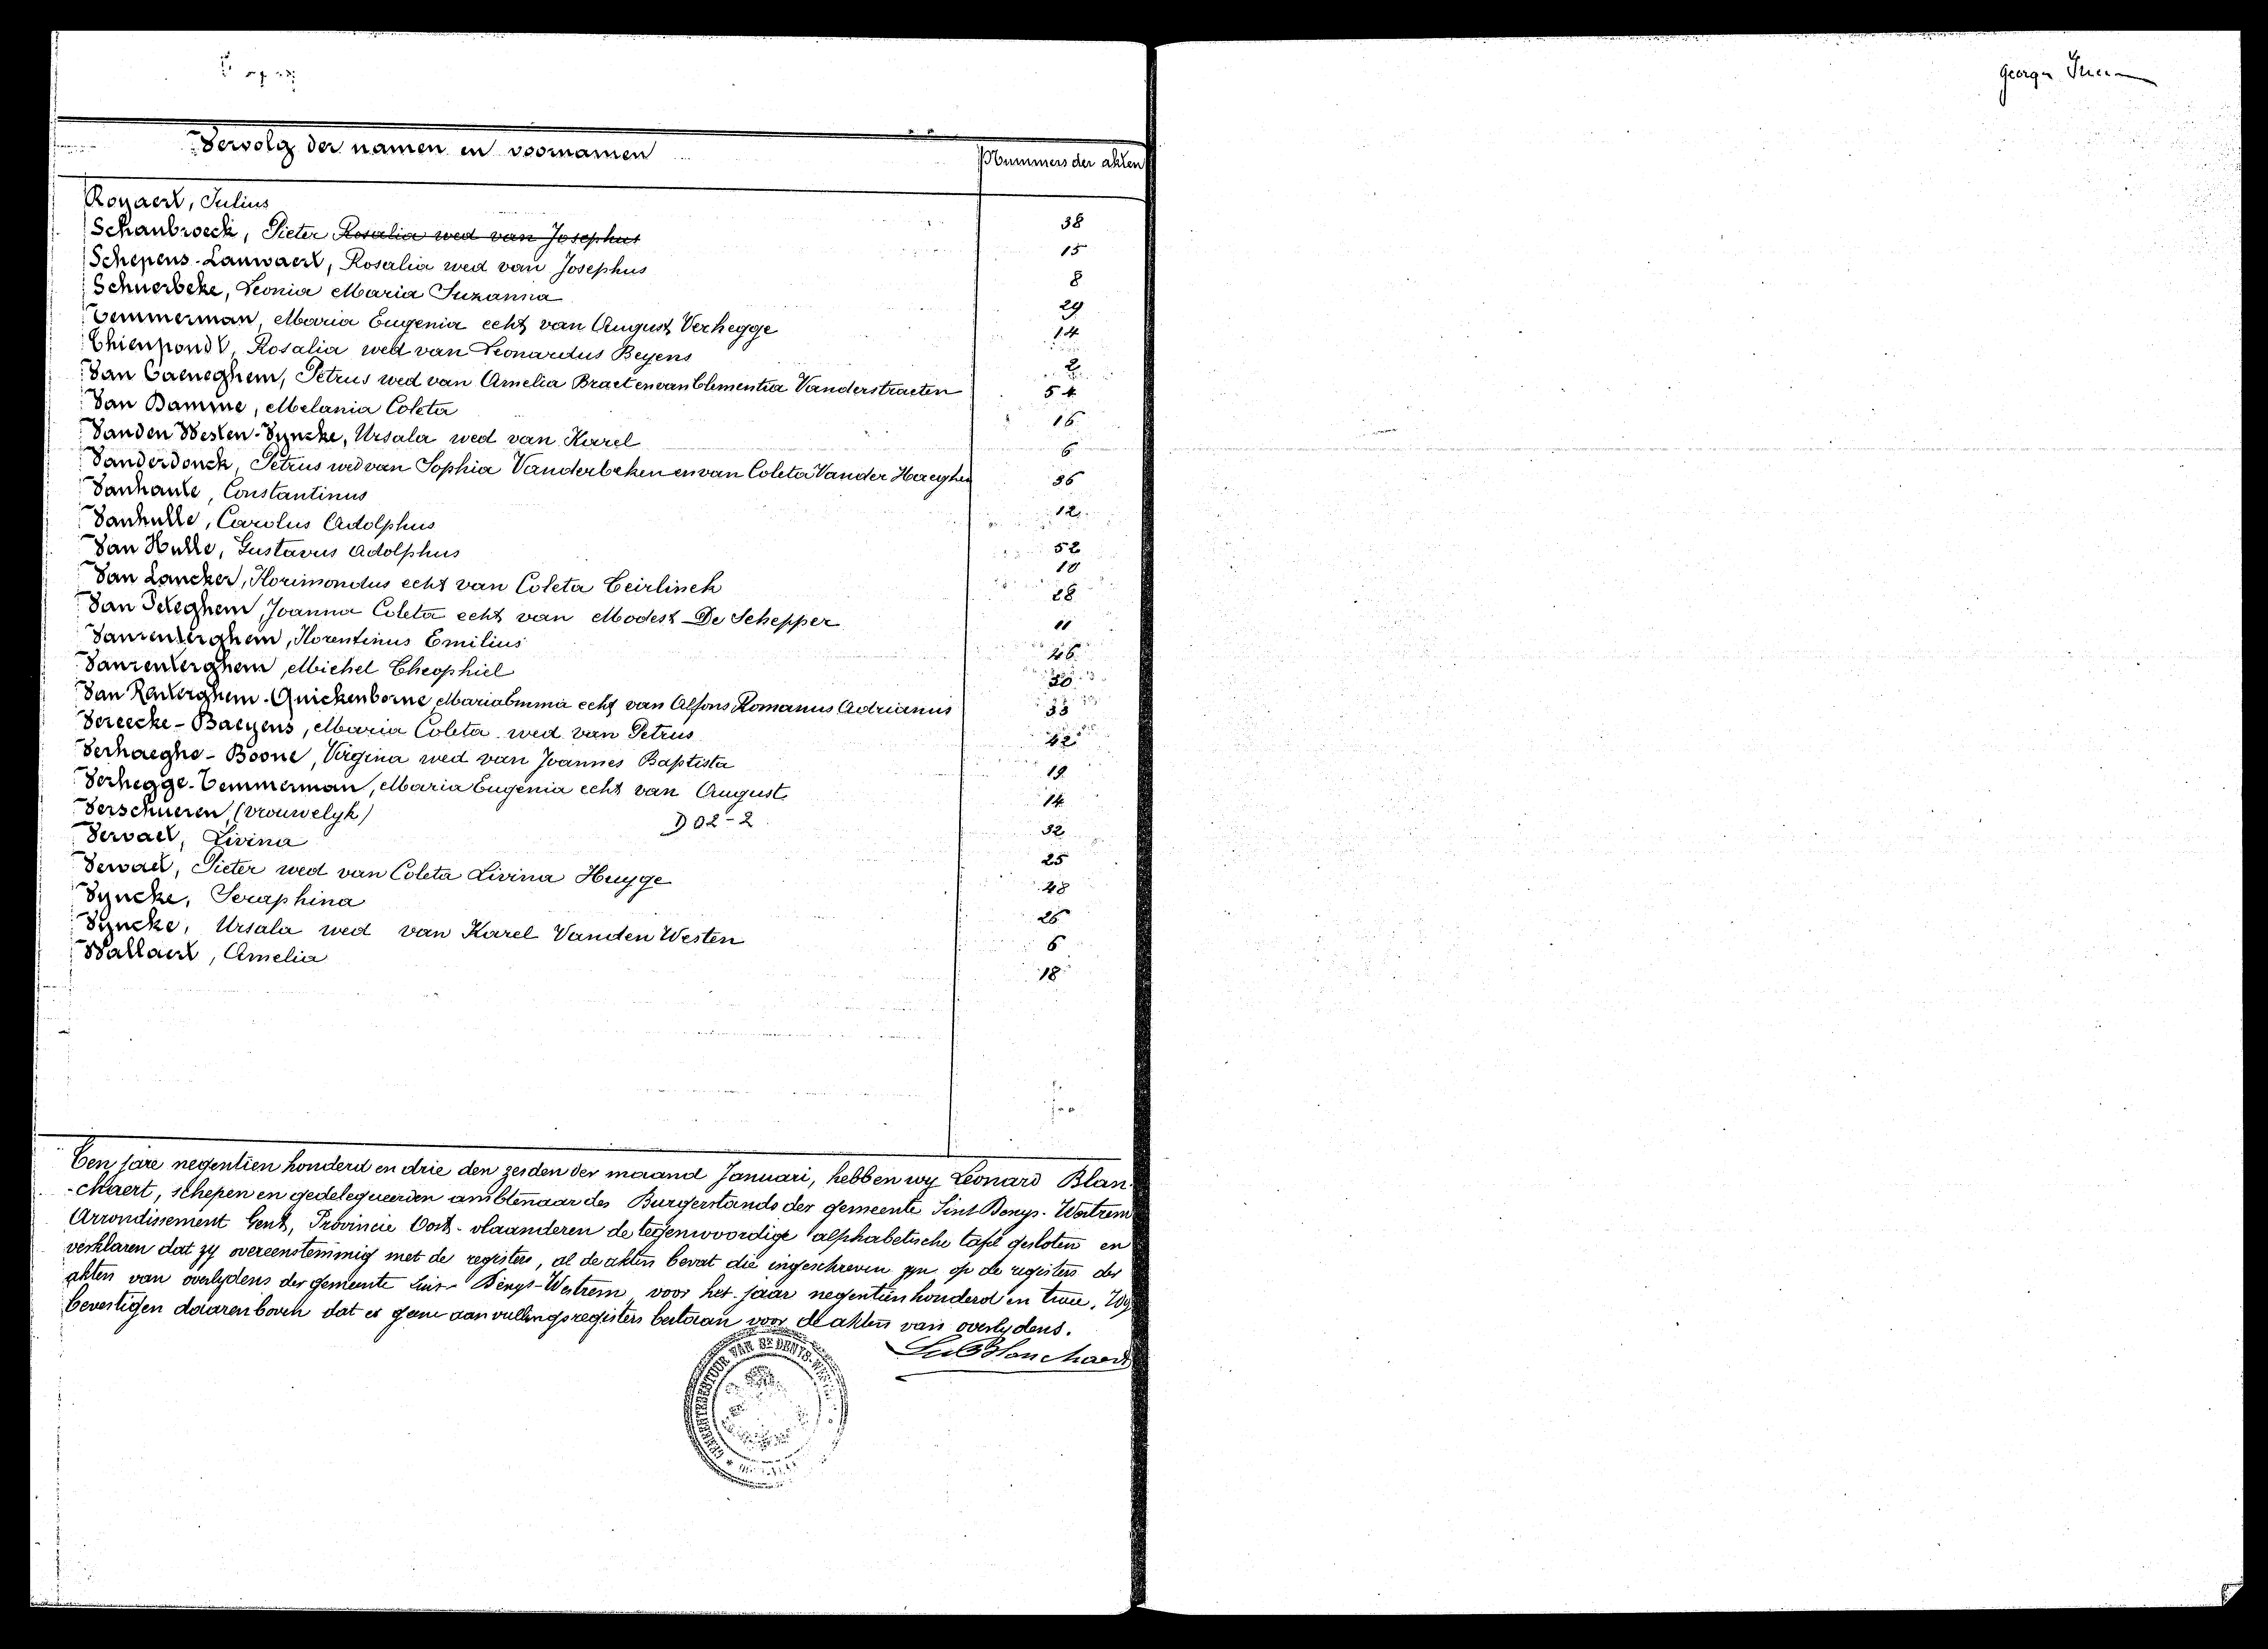 George
Vervolg der namen en voornamen Nummers der akten
Royaert, Julius 38
Schaubroeck, Pieter Rosalia wed van Josephus 15
Schepens-Lauwaert, Rosalia wed van Josephus 8
Schuerbeke, Leonia Maria Suzanna 29
Temmerman, Maria Eugenia echt van August Verhegge 14
Thienpondt, Rosalia wed van Leonardus Beyens 2
Van Caeneghem, Petrus wed van Amelia Braet en van Clementia Vanderstraeten 54
Van Damme, Melania Coleta 16
Vanden Westen-Vyncke, Ursala wed van Karel 6
Vanderdonck, Petrus wed van Sophia Vanderbeken en van Coleta Vander Haeghen 36
Vanhaute, Constantinus 12
Vanhulle, Carolus Adolphus 52
Van Hulle, Gustavus Adolphus 10
Van Lancker, Florimondus echt van Coleta Ceirlinck 28
Van Peteghem, Joanna Coleta echt van Modest De Schepper 11
Vanrenterghem, Florentinus Emilius 46
Vanrenterghem, Michel Theophiel 30
Van Renterghem-Quickenborne, Maria Emma echt van Alfons Romanus Adrianus 33
Vereecke-Baeyens, Maria Coleta wed van Petrus 42
Verhaeghe-Boone, Virgina wed van Joannes Baptista 19
Verhegge-Temmerman, Maria Eugenia echt van August 14
Verschueren (vrouwelyk) D02-2 32
Vervaet, Livina 25
Vervaet, Pieter wed van Coleta Livina Huyge 48
Vyncke, Seraphina 26
Vyncke, Ursala wed van Karel Vanden Westen 6
Wallaert, Amelia 18
Ten jare negentien honderd en drie den zesden der maand Januari, hebben wy Leonard Blan-
-ckaert, schepen en gedelegueerden ambtenaar des Burgerstands der gemeente Sint Denys-Westrem
Arrondissement Gent, Provincie Oost-vlaanderen de tegenwoordige alphabetische tafel gesloten en
verklaren dat zy overeenstemmig met de registers, al de akten bevat die ingeschreven zyn op de registers der
akten van overlydens der gemeente Sint-Denys-Westrem voor het jaar negentien honderd en twee. Wy
bevestigen daarenboven dat er geene aanvullingsregisters bestaan voor de akten van overlydens.
Blanckaert
GEMEENTEBESTUUR VAN ST DENYS-